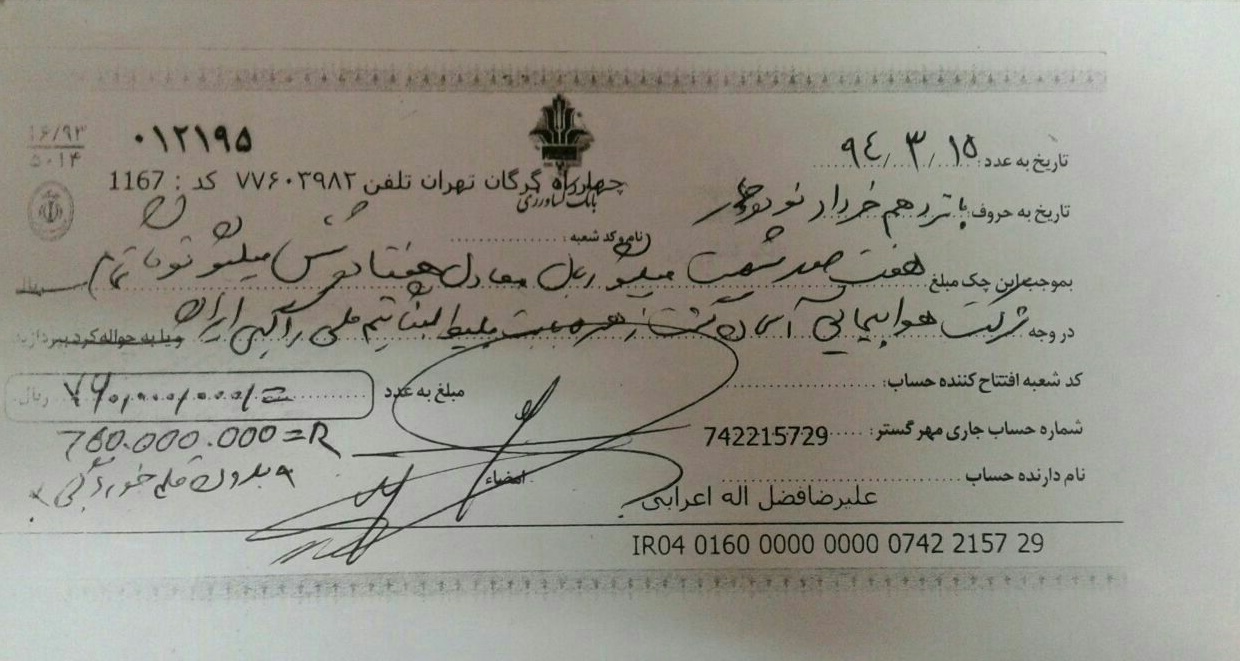 تاریخ به عدد: ۹۴/۳/۱۵
۰۱۲۱۹۵
۱۶/۹۳
۵۰۱۴
بانک کشاورزی
چهارراه گرگان تهران تلفن ۷۷۶۰۳۹۸۲ کد : 1167
تاریخ به حروف: پانزدهم خرداد نود و چهار
نام و کد شعبه:
بموجب این چک مبلغ هفتصد شصت میلیون ریال معادل هفتاد و شش میلیون تومان تمام ریال
در وجه شرکت هواپیمایی آسمان بابت بلیط تیم ملی راگبی ایران و یا به حواله کرد بپردازید
کد شعبه افتتاح کننده حساب:
مبلغ به عدد ۷۶۰/۰۰۰/۰۰۰/= ریال
شماره حساب جاری مهر گستر: 742215729
760.000.000=R
نام دارنده حساب علیرضافضل اله اعرابی
امضاء
بدون قلم خوردگی
IR04 0160 0000 0000 0742 2157 29